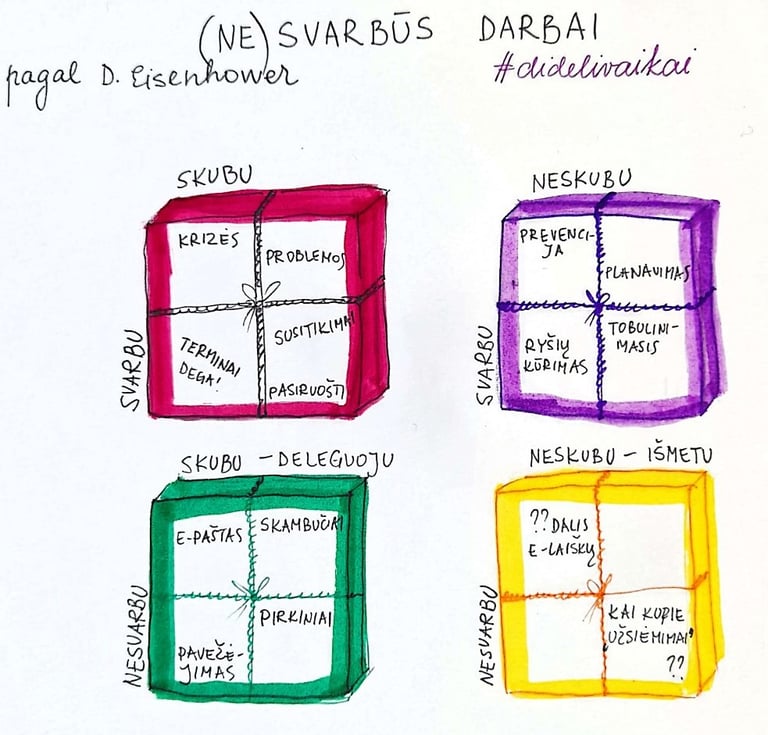 (NE)SVARBŪS DARBAI
pagal D. Eisenhower
#didelivaikai
SKUBU
SVARBU
KRIZĖS
PROBLEMOS
TERMINAI
DEGA!
SUSITIKIMAI
PASIRUOŠTI
NESKUBU
SVARBU
PREVENCI-
JA
PLANAVIMAS
RYŠIŲ
KŪRIMAS
TOBULINI-
MASIS
SKUBU - DELEGUOJU
NESVARBU
E-PAŠTAS
SKAMBUČIAI
PAVEŽĖ-
JIMAS
PIRKINIAI
NESKUBU - IŠMETU
NESVARBU
?? DALIS
E-LAIŠKŲ
KAI KURIE
"UŽSIĖMIMAI"
??